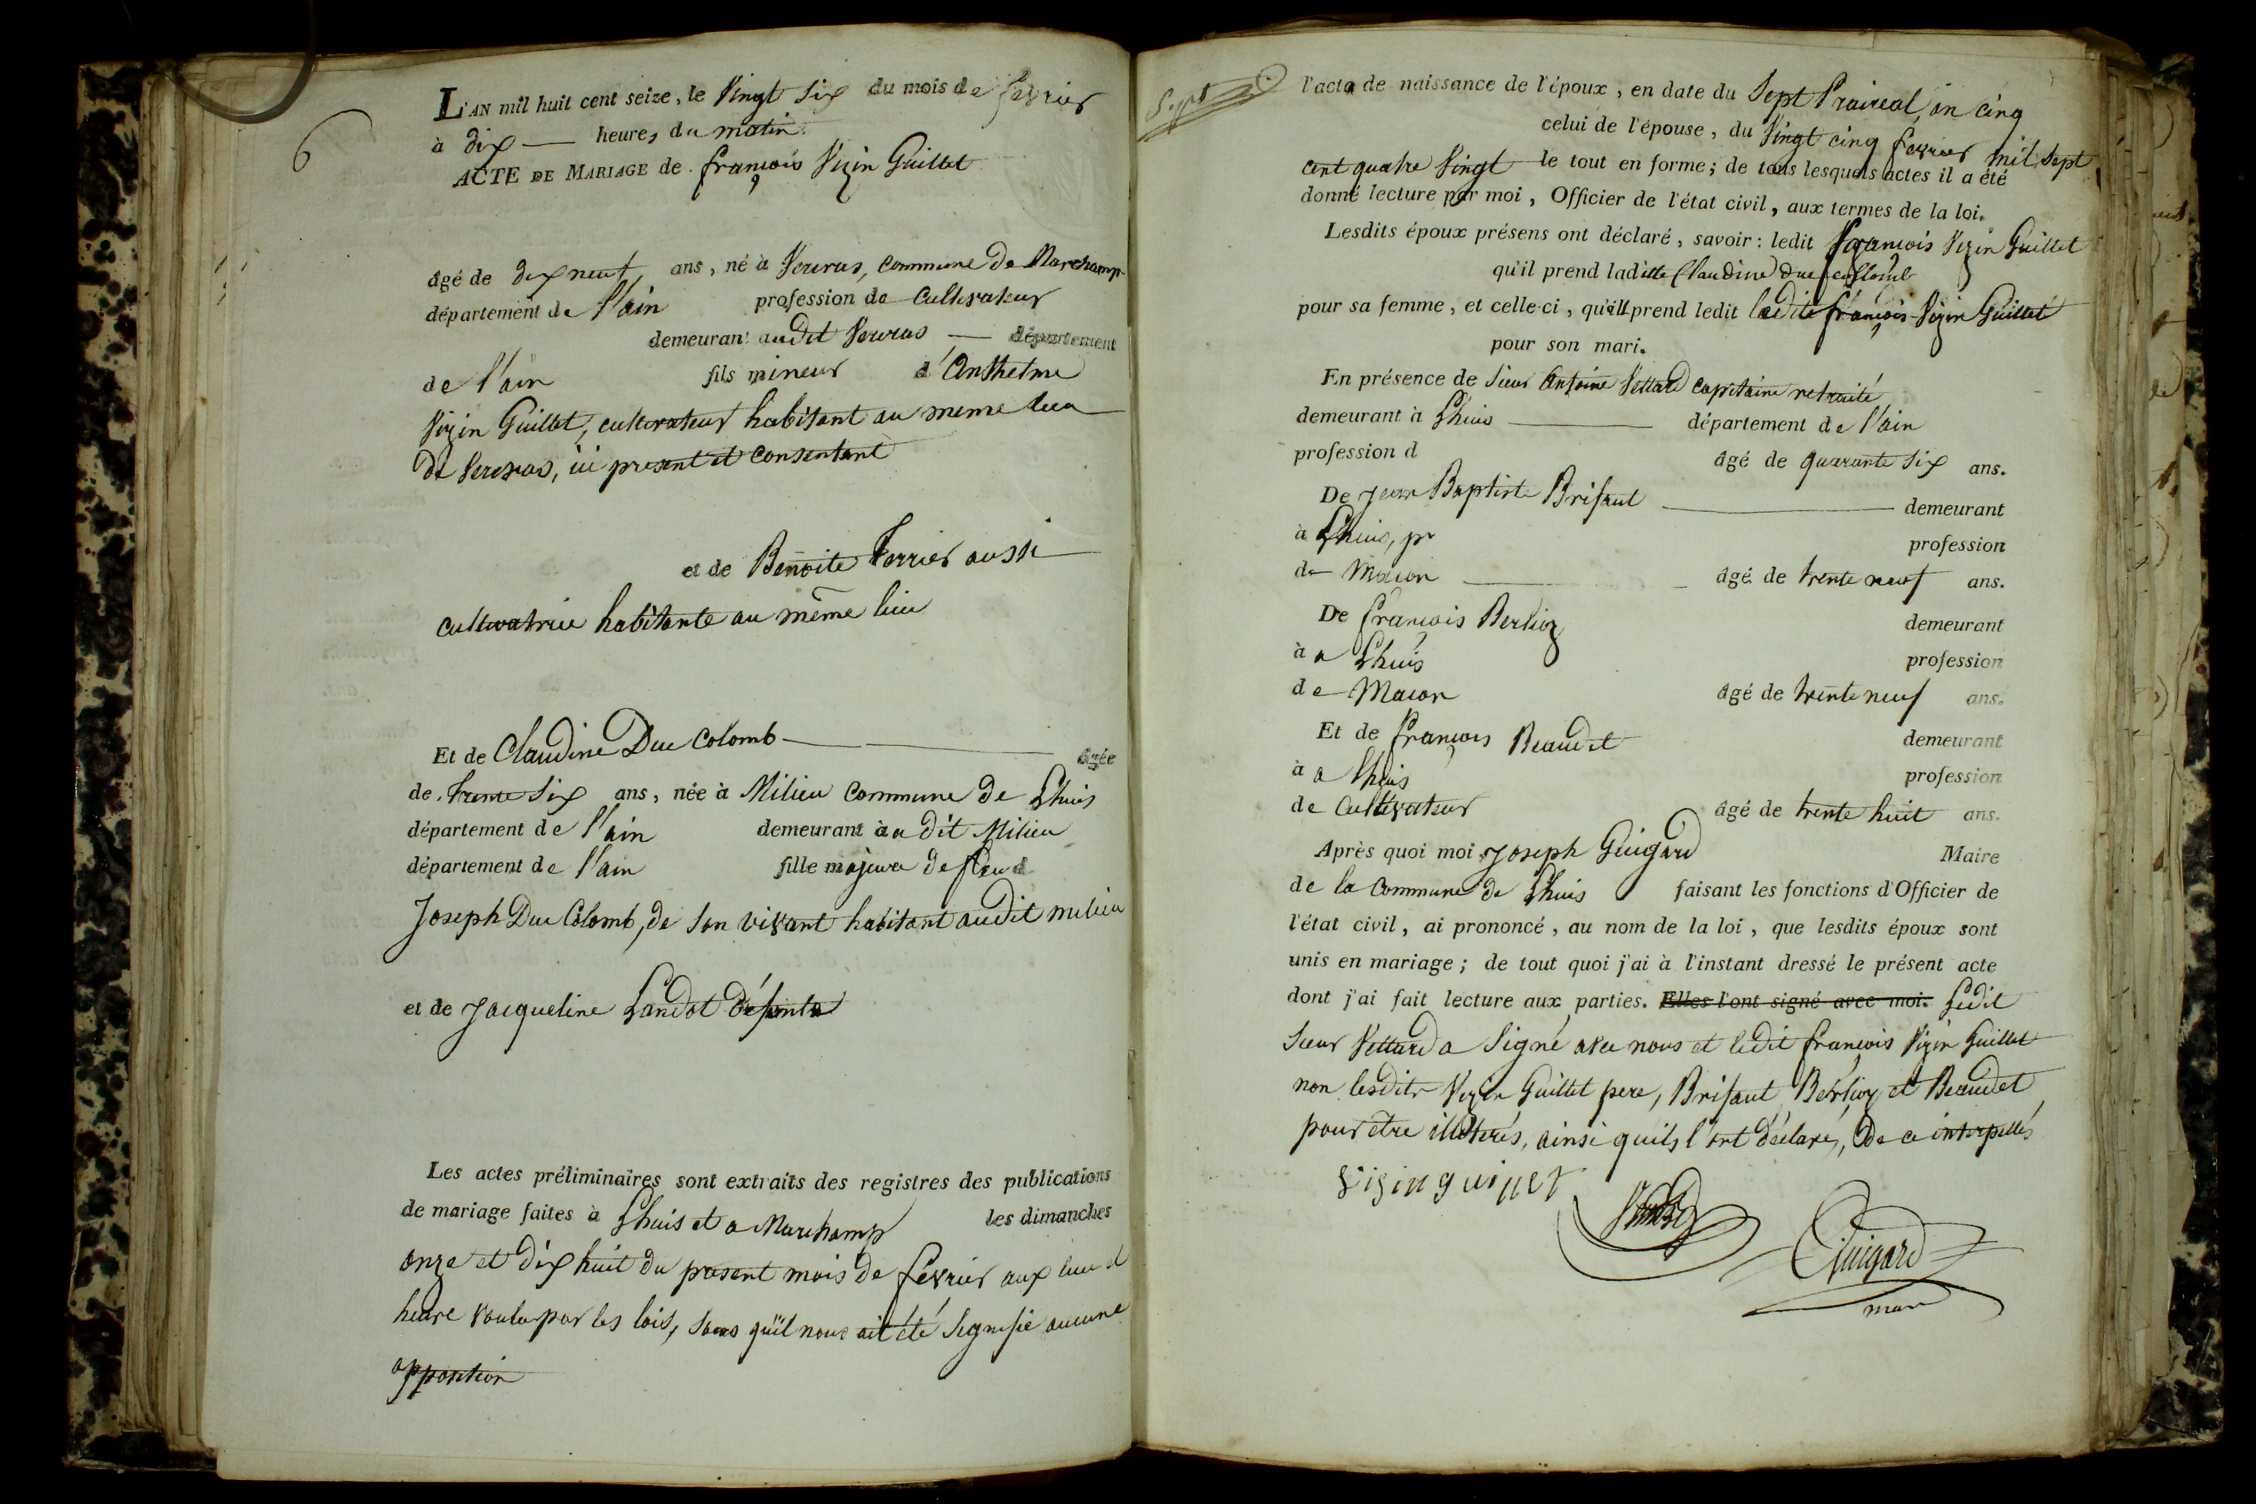 6
L'AN mil huit cent seize, le Vingt Six du mois de fevrier
à dix — heures du matin
ACTE DE MARIAGE de françois Vizin Guillet
âgé de dix neuf ans, né à Seuvas, commune de Marchamp
département de l'ain profession de Cultivateur
demeurant audit — département
de l'ain fils mineur d'Anthelme
Vizin Guillet, cultivateur habitant au meme lieu
de, ici present et consentant
et de Benoite Terrier aussi
cultivatrice habitante au même lieu
Et de Claudine Duc Colomb — âgée
de trente Six ans, née à Milieu commune de Lhuis
département de l'ain demeurant à audit Milieu
département de l'ain fille majeure de feu d
Joseph Duc Colomb, de son vivant habitant audit milieu
et de Jacqueline Landot défunte
Les actes préliminaires sont extraits des registres des publications
de mariage faites à Lhuis et a Marchamp les dimanches
onze et dix huit du present mois de fevrier aux lieu et
heure voulu par les lois, sans qu'il nous ait été signifié aucune
opposition
Sept
l'acte de naissance de l'époux, en date du Sept Prairéal, an cinq
celui de l'épouse, du Vingt cinq fevrier mil sept
cent quatre Vingt le tout en forme; de tous lesquels actes il a été
donné lecture par moi, Officier de l'état civil, aux termes de la loi.
Lesdits époux présens ont déclaré, savoir: ledit françois Vizin Guillet
qu'il prend ladite Claudine Duc Collomb
pour sa femme, et celle-ci, qu'elle prend ledit ledit françois Vizin Guillet
pour son mari.
En présence de Sieur Antoine Vettard capitaine retraité
demeurant à Lhuis — département de l'ain
profession d âgé de quarante Six ans.
De Jean Baptiste Brisaut — demeurant
à Lhuis, pr profession
de Macon — âgé de trente neuf ans.
De françois Berlioz demeurant
à a Lhuis profession
de Macon âgé de trente neuf ans.
Et de françois Beaudet demeurant
à a Lhuis profession
de Cultivateur âgé de trente huit ans.
Après quoi moi Joseph Guigard Maire
de la Commune de Lhuis faisant les fonctions d'Officier de
l'état civil, ai prononcé, au nom de la loi, que lesdits époux sont
unis en mariage; de tout quoi j'ai à l'instant dressé le présent acte
dont j'ai fait lecture aux parties. Elles l'ont signé avec moi. Ledit
Sieur Vettard a Signé avec nous et ledit françois Vizin Guillet
non lesdits Vizin Guillet pere, Brisaut Berlioz et Beaudet
pour etre illétterés, ainsi quils l'ont déclaré, de ce interpellés
Vizin guillet
Vettard
Guigard
maire